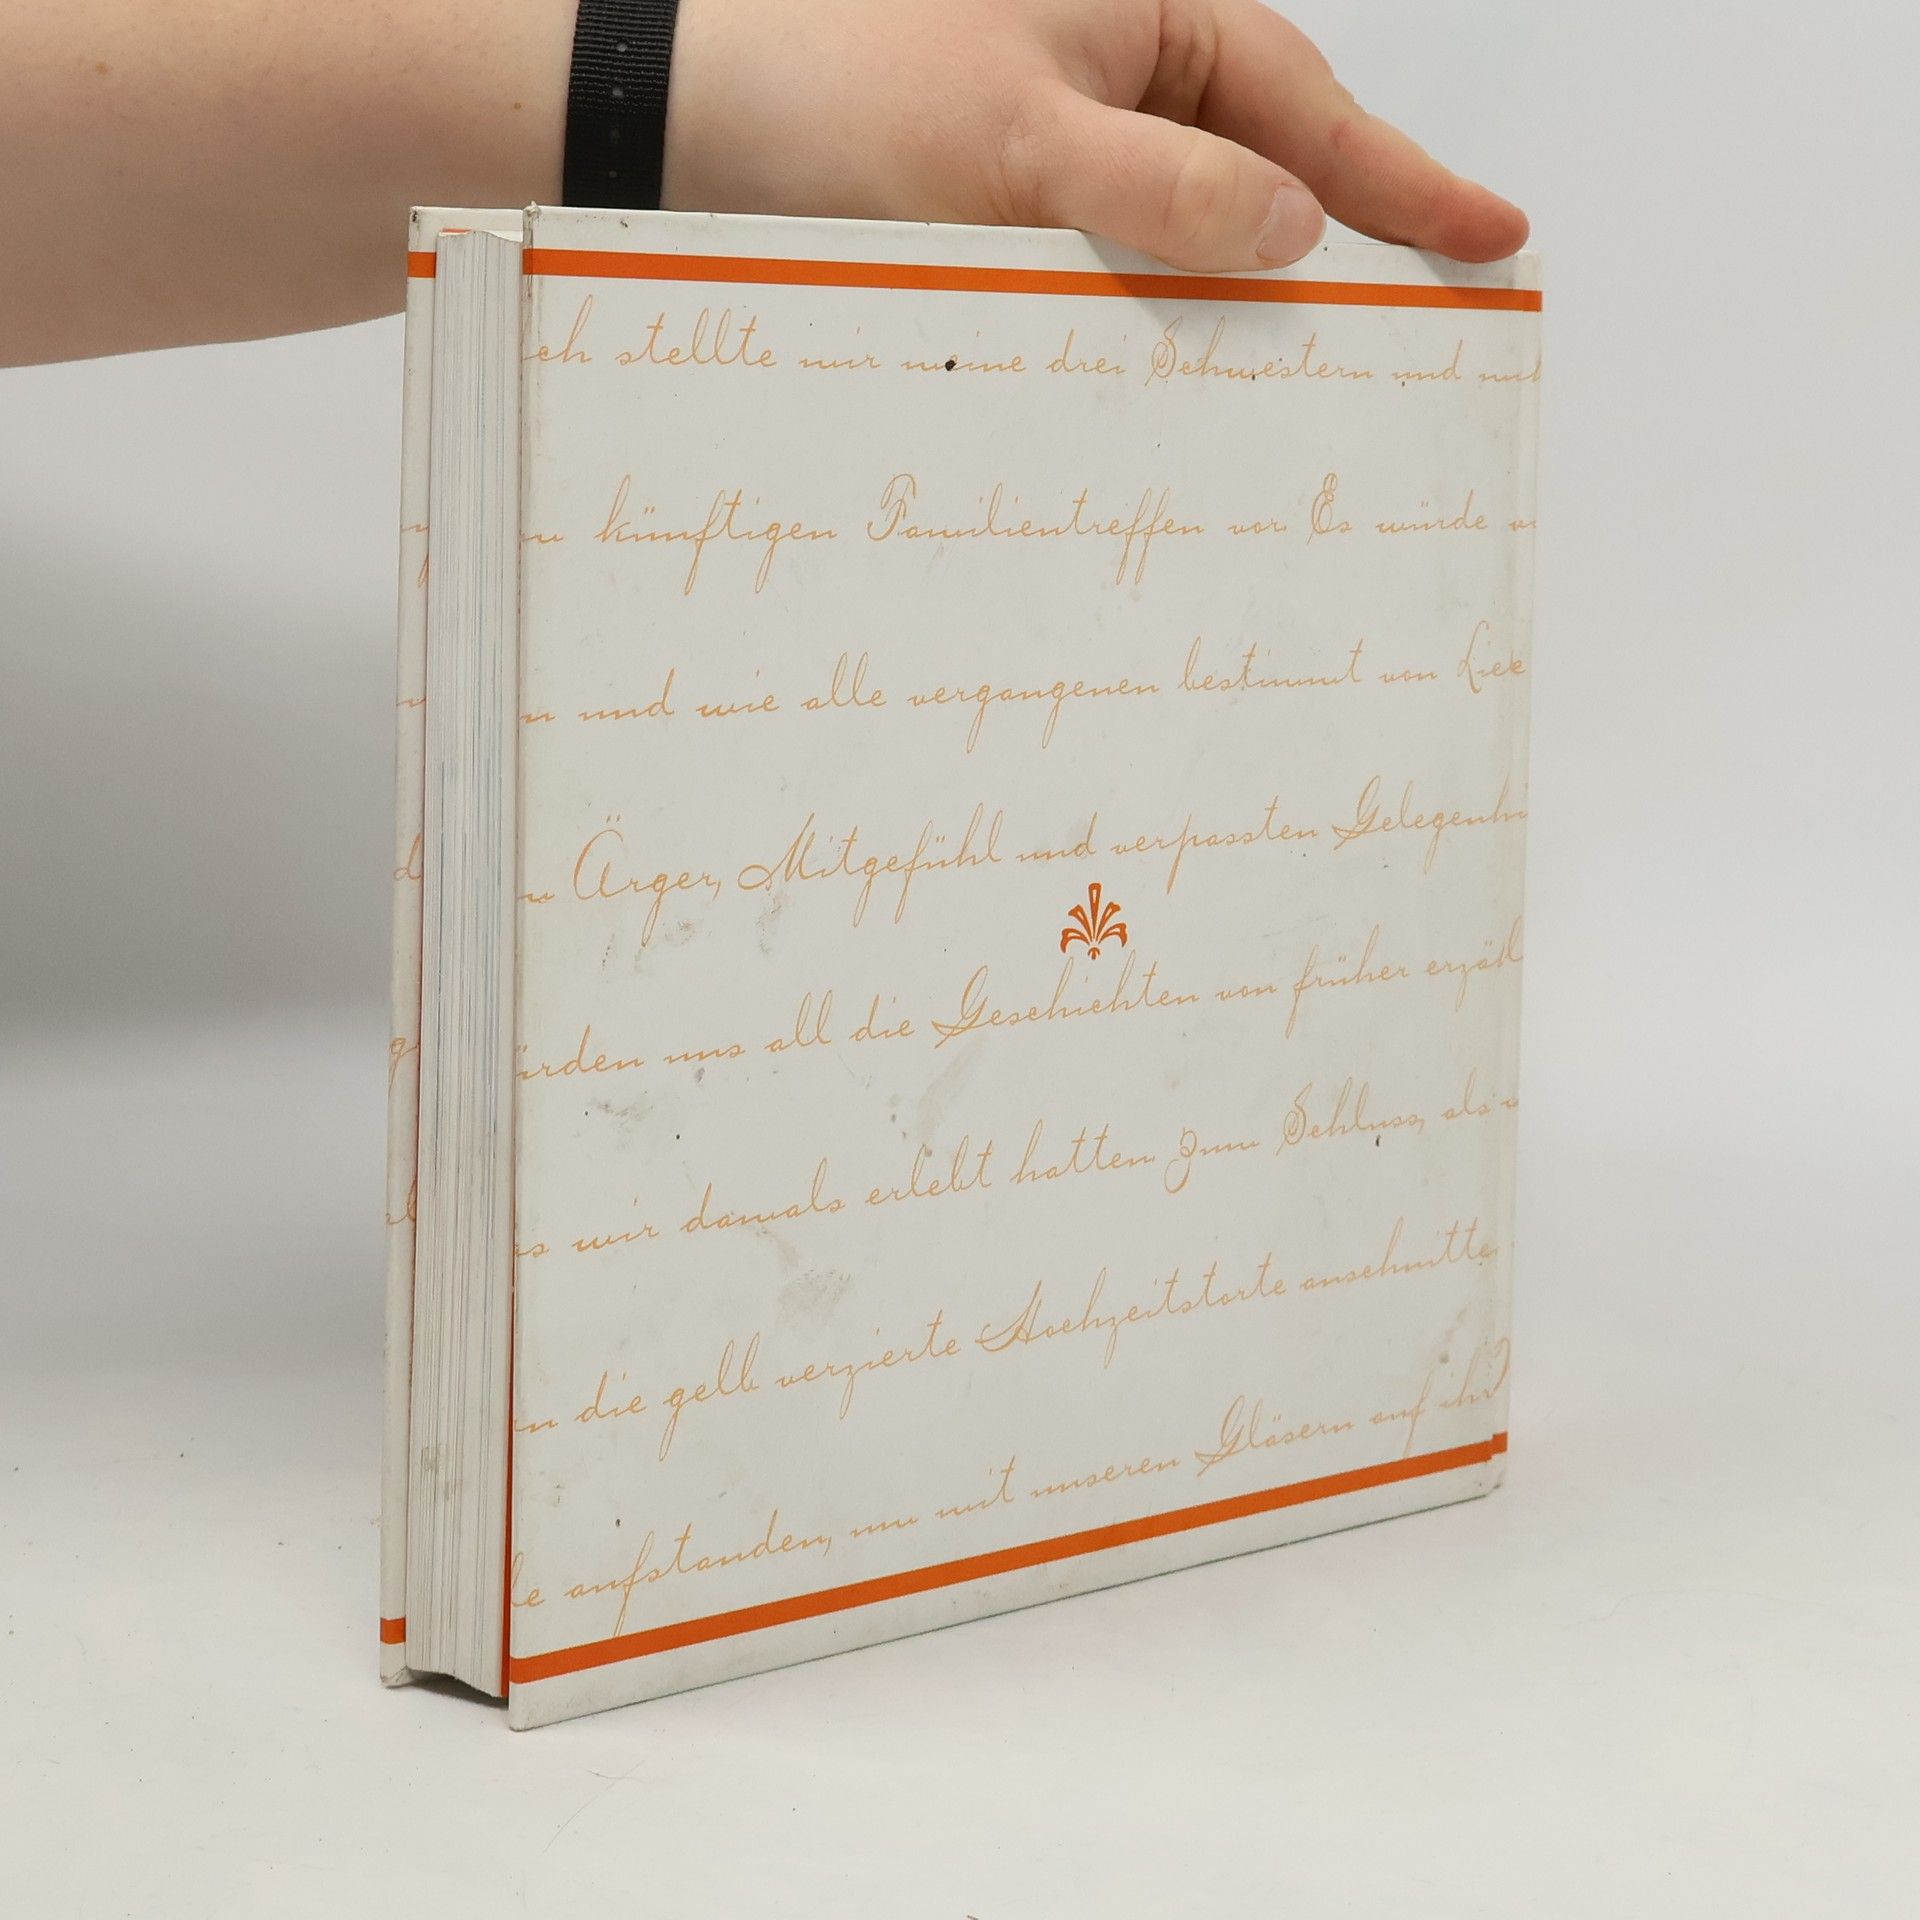 ch stellte mir meine drei Schwestern und mich
künftigen Familientreffen vor. Es würde
n und wie alle vergangenen bestimmt von Liebe
Ärger, Mitgefühl und verpassten Gelegenh
ürden uns all die Geschichten von früher erzähl
s wir damals erlebt hatten. Zum Schluss, als
n die gelb verzierte Hochzeitstorte anschnitte
e aufstanden, um mit unseren Gläsern auf ihr